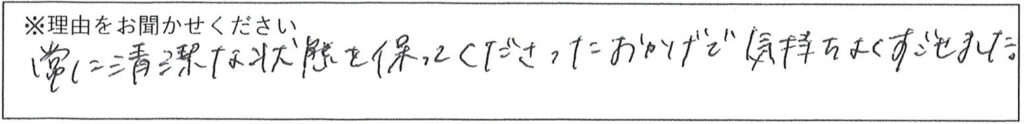 ※理由をお聞かせください
常に清潔な状態を保ってくださったおかげで気持ちよくすごせました。